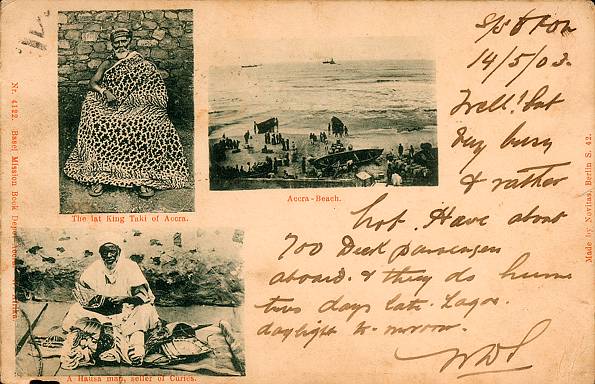 The lat King Taki of Accra.
Accra-Beach.
A Hausa man, seller of Curies.
Nr. 4122. Basel Mission Book Depot
Made by Novitas, Berlin S. 42.
14/5/03.
Well! but
busy
& rather
hot. Have about
700 Deck passengers
aboard. & they do hum
two days late. Lagos.
daylight to-morrow.